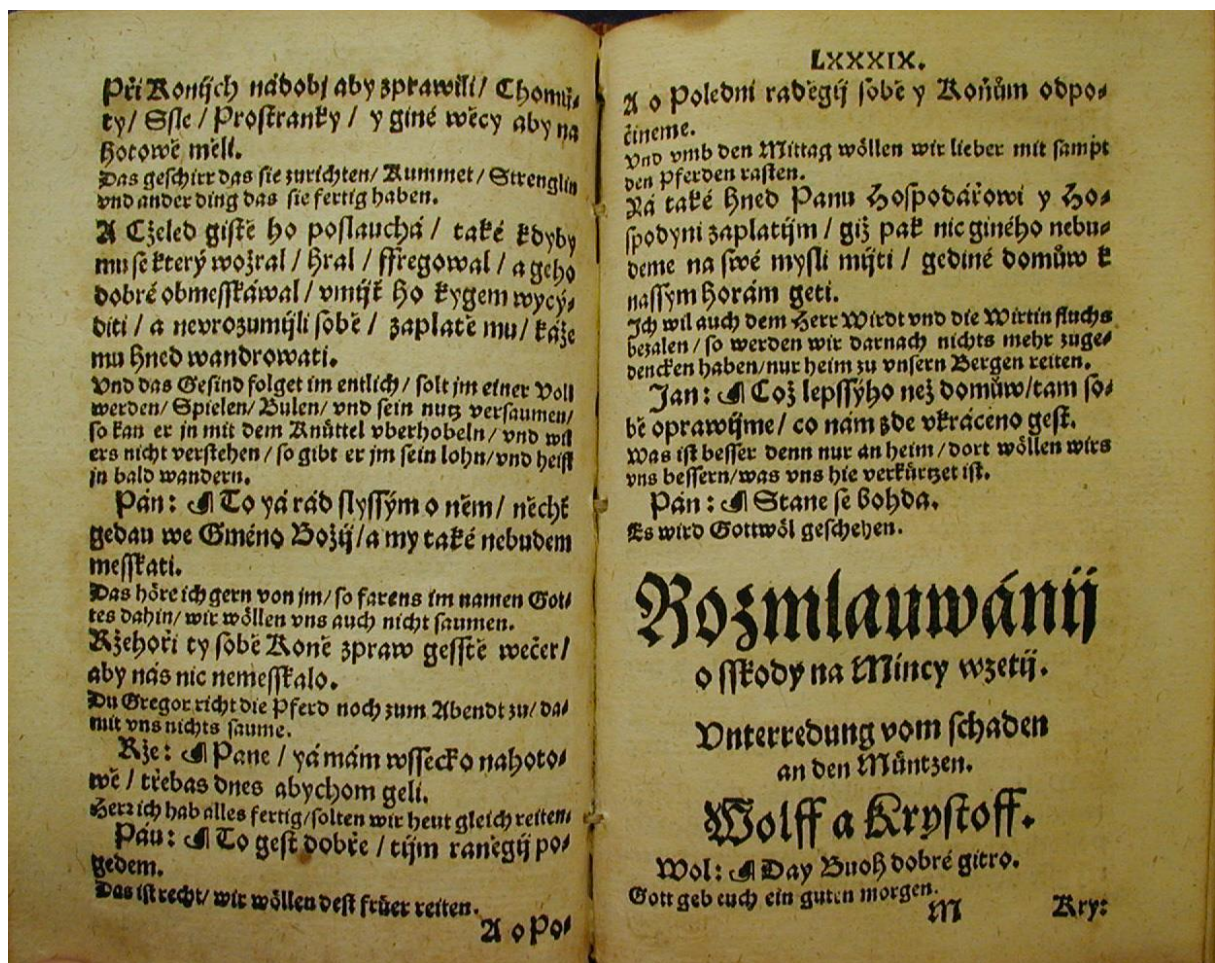 Při Konijch nádobj aby zprawili/ Chomij-
ty/ Ssle/ Prostranky/ y giné wěcy aby na
hotowě měli.
Das geschirr das sie zurichten/ Kummet/ Strenglin
vnd ander ding das sie fertig haben.
A Cželed gistě ho poslauchá/ také kdyby
mu se který wožral/ hral/ ffregowal/ a geho
dobré obmesskáwal/ vmijť ho kygem wycý-
diti/ a nevrozumijli sobě/ zaplatě mu/ káže
mu hned wandrowati.
Vnd das Gesind folget im entlich/ solt jm einer Voll
werden/ Spielen/ Bulen/ vnd sein nutz versaumen/
so kan er jn mit dem Knüttel vberhobeln/ vnd wil
ers nicht verstehen/ so gibt er jm sein lohn/ vnd heist
jn bald wandern.
Pán: ☙ To yá rád slyssým o něm/ něchť
gedau we Gméno Božij/ a my také nebudem
messkati.
Das höre ich gern von jm/ so farens im namen Got-
tes dahin/ wir wöllen vns auch nicht saumen.
Ržehoři ty sobě Koně zpraw gesstě wečer/
aby nás nic nemesskalo.
Du Gregor richt die Pferd noch zum Abendt zu/ da-
mit vns nichts saume.
Rže: ☙ Pane/ yá mám wssecko nahoto-
wě/ třebas dnes abychom geli.
Herr ich hab alles fertig/ solten wir heut gleich reiten.
Páu: ☙ To gest dobře/ tijm raněgij po-
gedem.
Das ist recht/ wir wöllen dest früer reiten.
A o Po-
LXXXIX.
A o Polední raděgij sobě y Koňům odpo-
čineme.
Vnd vmb den Mittag wöllen wir lieber mit sampt
den Pferden rasten.
Yá také hned Panu Hospodářowi y Ho-
spodyni zaplatijm/ giž pak nic giného nebu-
deme na swé mysli mijti/ gediné domůw k
nassym Horám geti.
Ich wil auch dem Herr Wirdt vnd die Wirtin fluchs
bezalen/ so werden wir darnach nichts mehr zuge-
dencken haben/ nur heim zu vnsern Bergen reiten.
Jan: ☙ Což lepssýho než domůw/ tam so-
bě oprawijme/ co nám zde vkráceno gest.
Was ist besser denn nur an heim/ dort wöllen wirs
vns bessern/ was vns hie verkürtzet ist.
Pán: ☙ Stane se bohda.
Es wird Gottwöl geschehen.
Rozmlauwánij
o sskody na Mincy wzetij.
Vnterredung vom schaden
an den Müntzen.
Wolff a Krystoff.
Wol: ☙ Day Buoh dobré gitro.
Gott geb euch ein guten morgen.
M Kry: